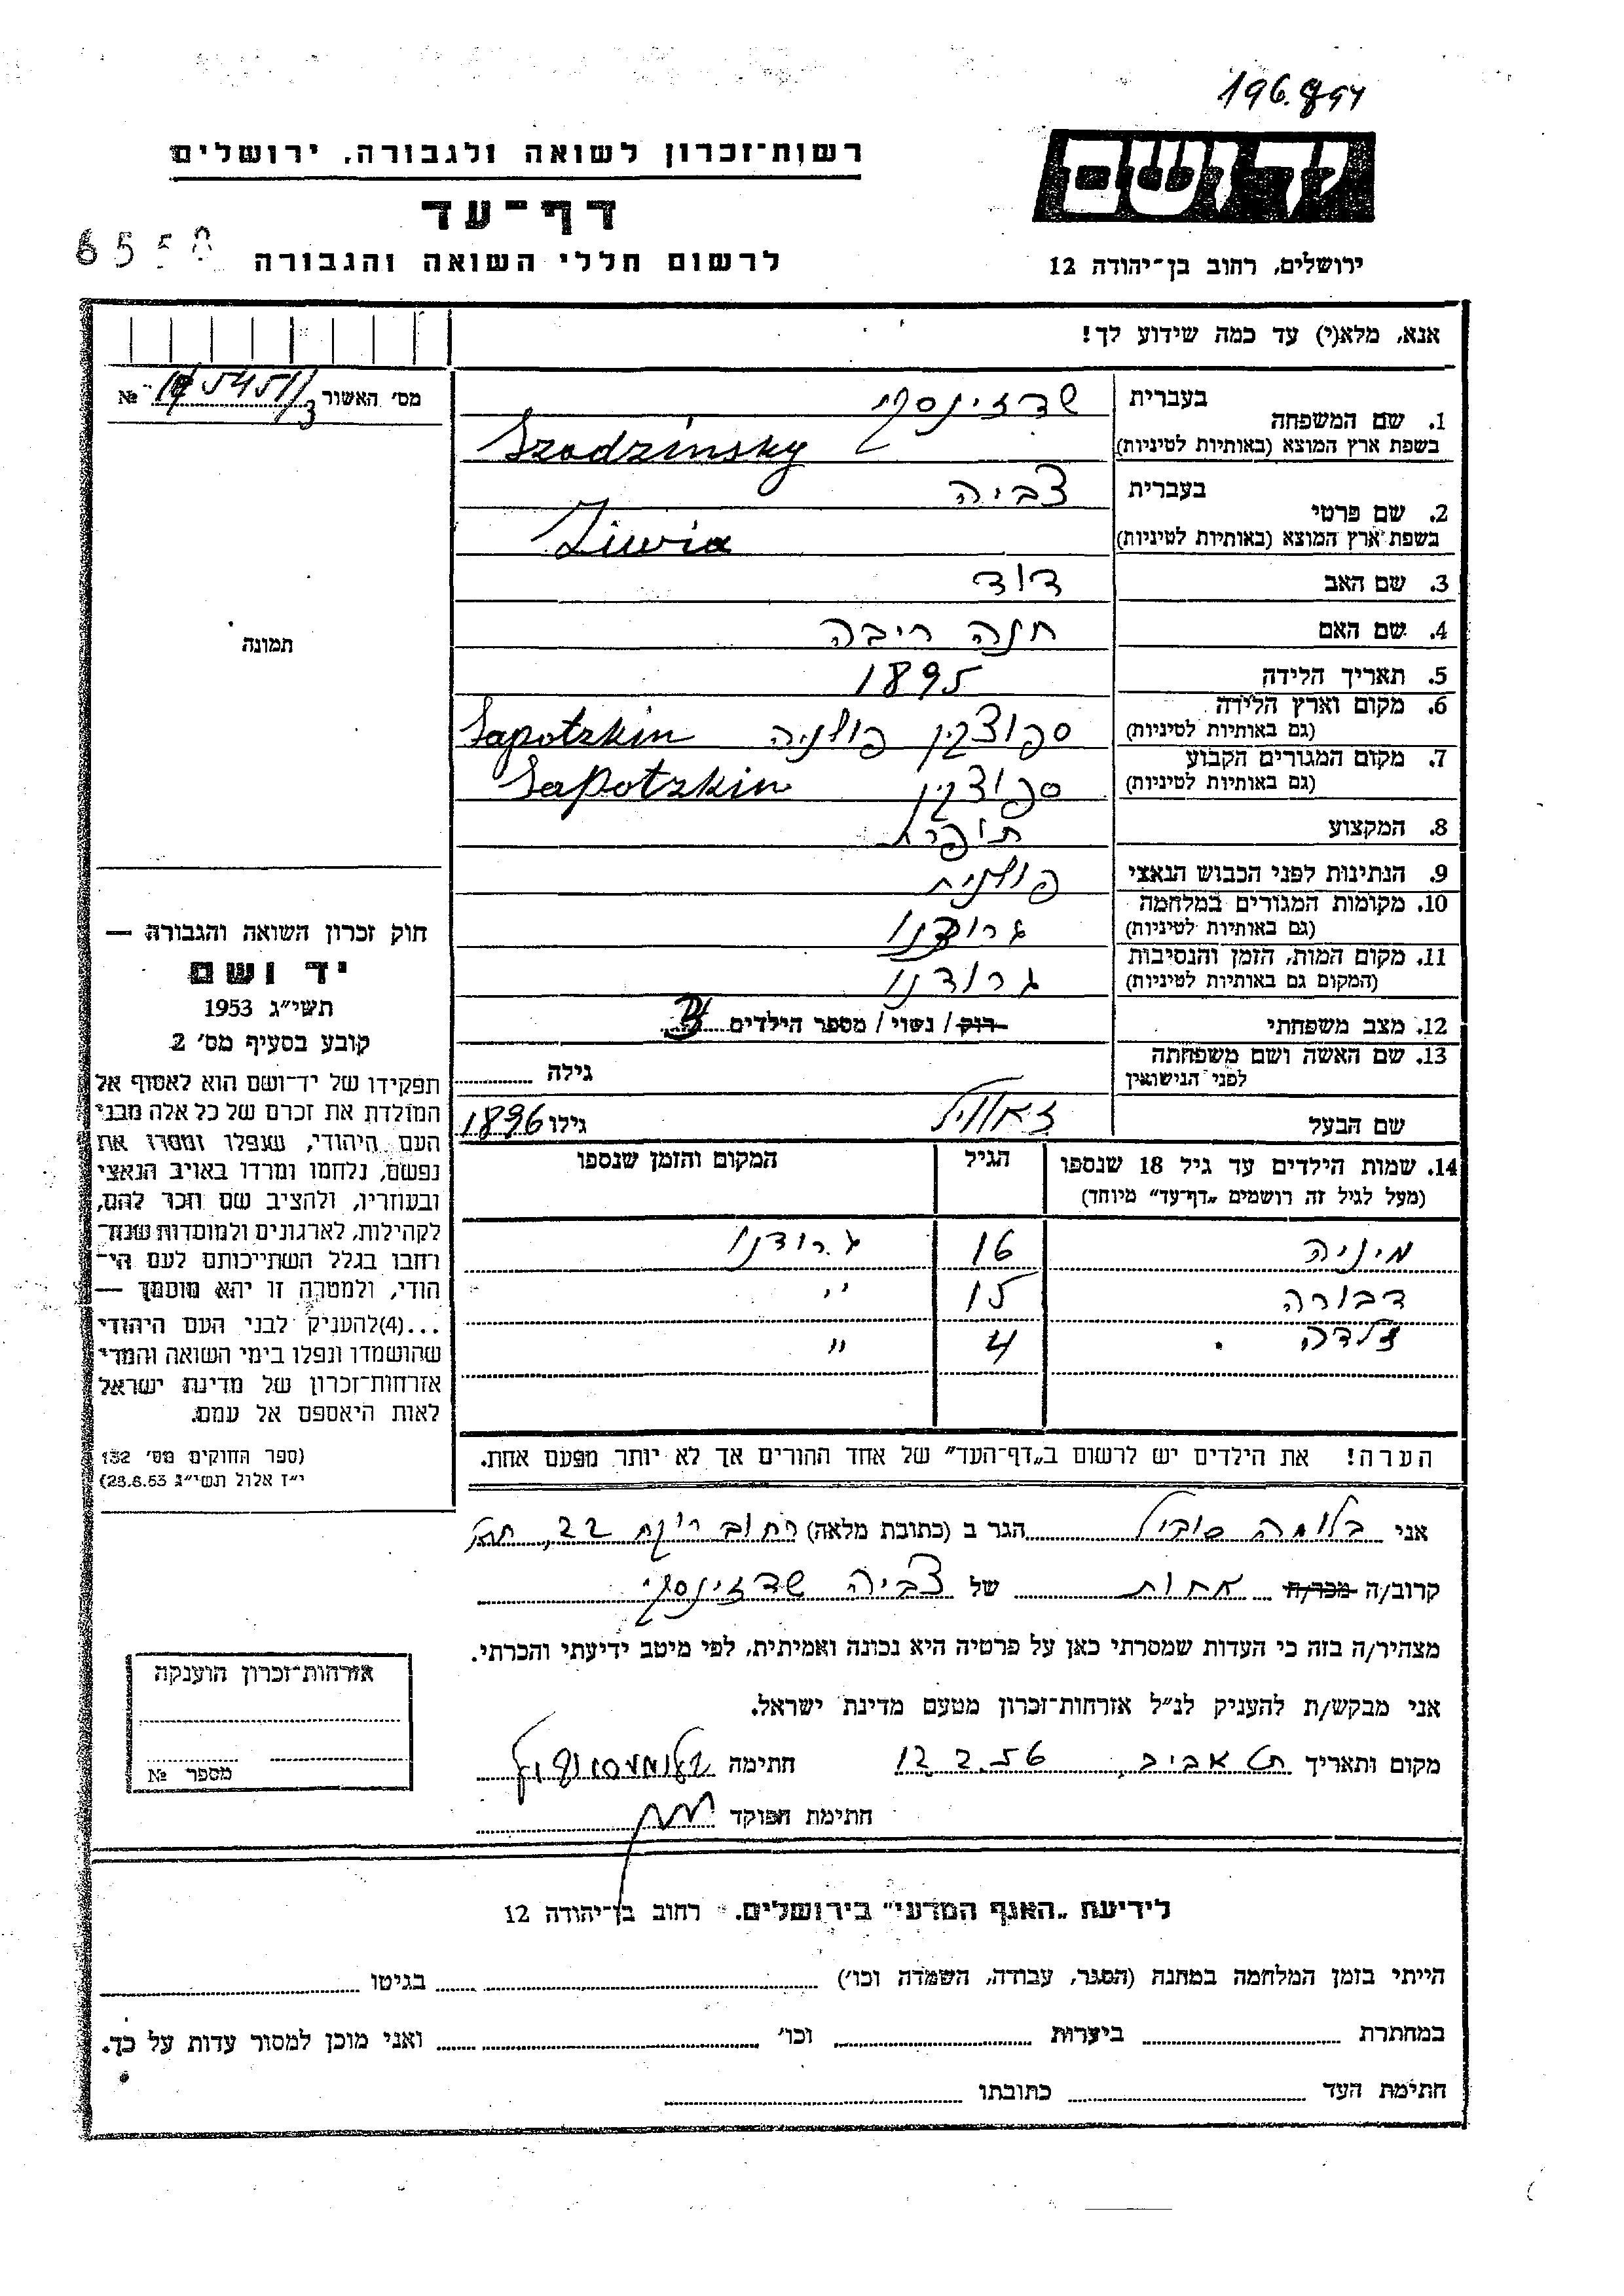 196.894
רשות־זכרון לשואה ולגבורה, ירושלים
יד ושם
דף־עד
לרשום חללי השואה והגבורה
ירושלים, רחוב בן־יהודה 12
אנא, מלא(י) עד כמה שידוע לך!
מס׳ האשור №
1. שם המשפחה בעברית שדזינסקי
בשפת ארץ המוצא (באותיות לטיניות) Szadzinsky
2. שם פרטי בעברית צביה
בשפת ארץ המוצא (באותיות לטיניות) Ziwia
3. שם האב דוד
4. שם האם חנה ריבה
תמונה
5. תאריך הלידה 1895
6. מקום וארץ הלידה (גם באותיות לטיניות) ספוצקין פולניה Sapotzkin
7. מקום המגורים הקבוע (גם באותיות לטיניות) ספוצקין Sapotzkin
8. המקצוע תופרת
9. הנתינות לפני הכבוש הנאצי פולנית
10. מקומות המגורים במלחמה (גם באותיות לטיניות) גרודנו
11. מקום המות, הזמן והנסיבות (המקום גם באותיות לטיניות) גרודנו
12. מצב משפחתי רוק / נשוי / מספר הילדים
13. שם האשה ושם משפחתה לפני הנישואין גילה
שם הבעל גילו 1896
14. שמות הילדים עד גיל 18 שנספו הגיל המקום והזמן שנספו
(מעל לגיל זה רושמים „דף־עד״ מיוחד)
מיניה 16 גרודנו
דבורה 15 ״
זלדה 4 ״
הערה! את הילדים יש לרשום ב„דף־העד״ של אחד ההורים אך לא יותר מפעם אחת.
חוק זכרון השואה והגבורה —
יד ושם
תשי״ג 1953
קובע בסעיף מס׳ 2
תפקידו של יד־ושם הוא לאסוף אל
המולדת את זכרם של כל אלה מבני
העם היהודי, שנפלו ומסרו את
נפשם, נלחמו ומרדו באויב הנאצי
ובעוזריו, ולהציב שם וזכר להם,
לקהילות, לארגונים ולמוסדות שנח־
רחבו בגלל השתייכותם לעם הי־
הודי, ולמטרה זו יהא מוסמך —
...(4)להעניק לבני העם היהודי
שהושמדו ונפלו בימי השואה והמרי
אזרחות־זכרון של מדינת ישראל
לאות היאספם אל עמם.
(ספר החוקים מס׳ 132
י״ז אלול תשי״ג 28.8.53)
אני בלומה הגר ב (כתובת מלאה) רחוב 22,
קרוב/ה מכר/ה אחות של צביה שדזינסקי
מצהיר/ה בזה כי העדות שמסרתי כאן על פרטיה היא נכונה ואמיתית, לפי מיטב ידיעתי והכרתי.
אני מבקש/ת להעניק לנ״ל אזרחות־זכרון מטעם מדינת ישראל.
מקום ותאריך תל אביב, 12.2.56 חתימה
חתימת הפוקד
אזרחות־זכרון הוענקה
מספר №
לידיעת „האגף המדעי״ בירושלים. רחוב בן־יהודה 12
הייתי בזמן המלחמה במחנה (הסגר, עבודה, השמדה וכו׳) בגיטו
במחתרת ביערות וכו׳ ואני מוכן למסור עדות על כך.
חתימת העד כתובתו